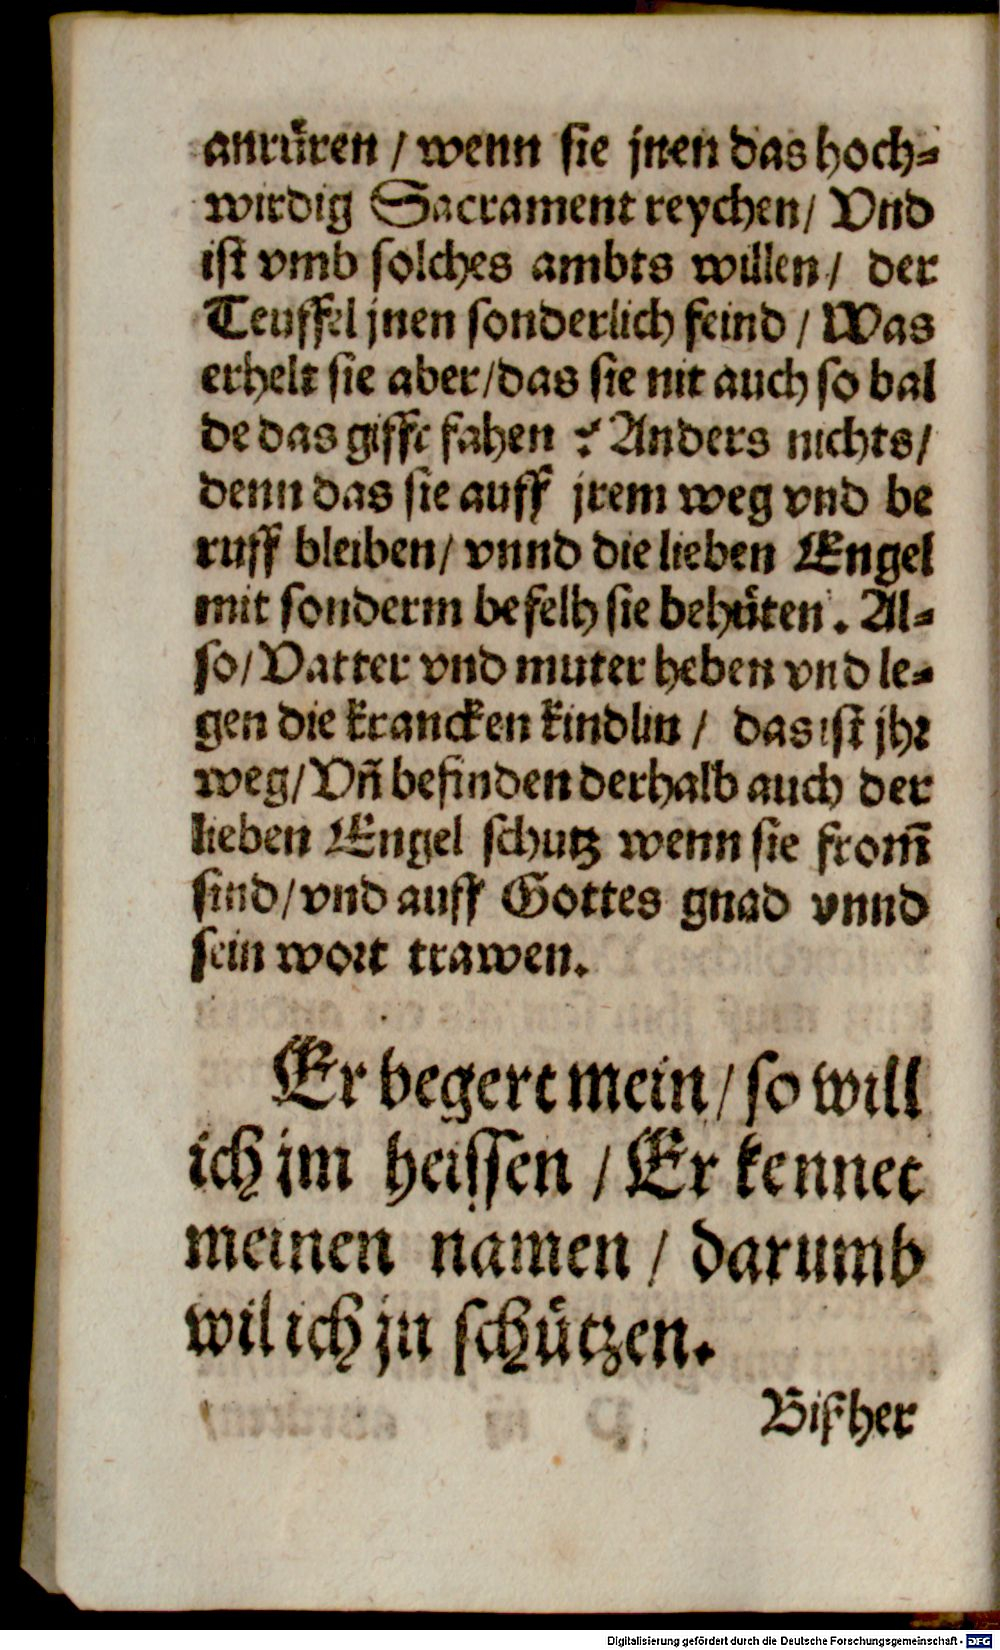 anrüren / wenn sie jnen das hoch-
wirdig Sacrament reychen / Vnd
ist vmb solches ambts willen / der
Teuffel jnen sonderlich feind / Was
erhelt sie aber / das sie nit auch so bal
de das gifft fahen ? Anders nichts /
denn das sie auff jrem weg vnd be
ruff bleiben / vnnd die lieben Engel
mit sonderm befelh sie behüten. Al-
so / Vatter vnd muter heben vnd le-
gen die krancken kindlin / das ist jhr
weg / Vñ befinden derhalb auch der
lieben Engel schutz wenn sie from̃
sind / vnd auff Gottes gnad vnnd
sein wort trawen.
Er begert mein / so will
ich jm heissen / Er kennet
meinen namen / darumb
wil ich jn schützen.
Bißher
Digitalisierung gefördert durch die Deutsche Forschungsgemeinschaft - DFG